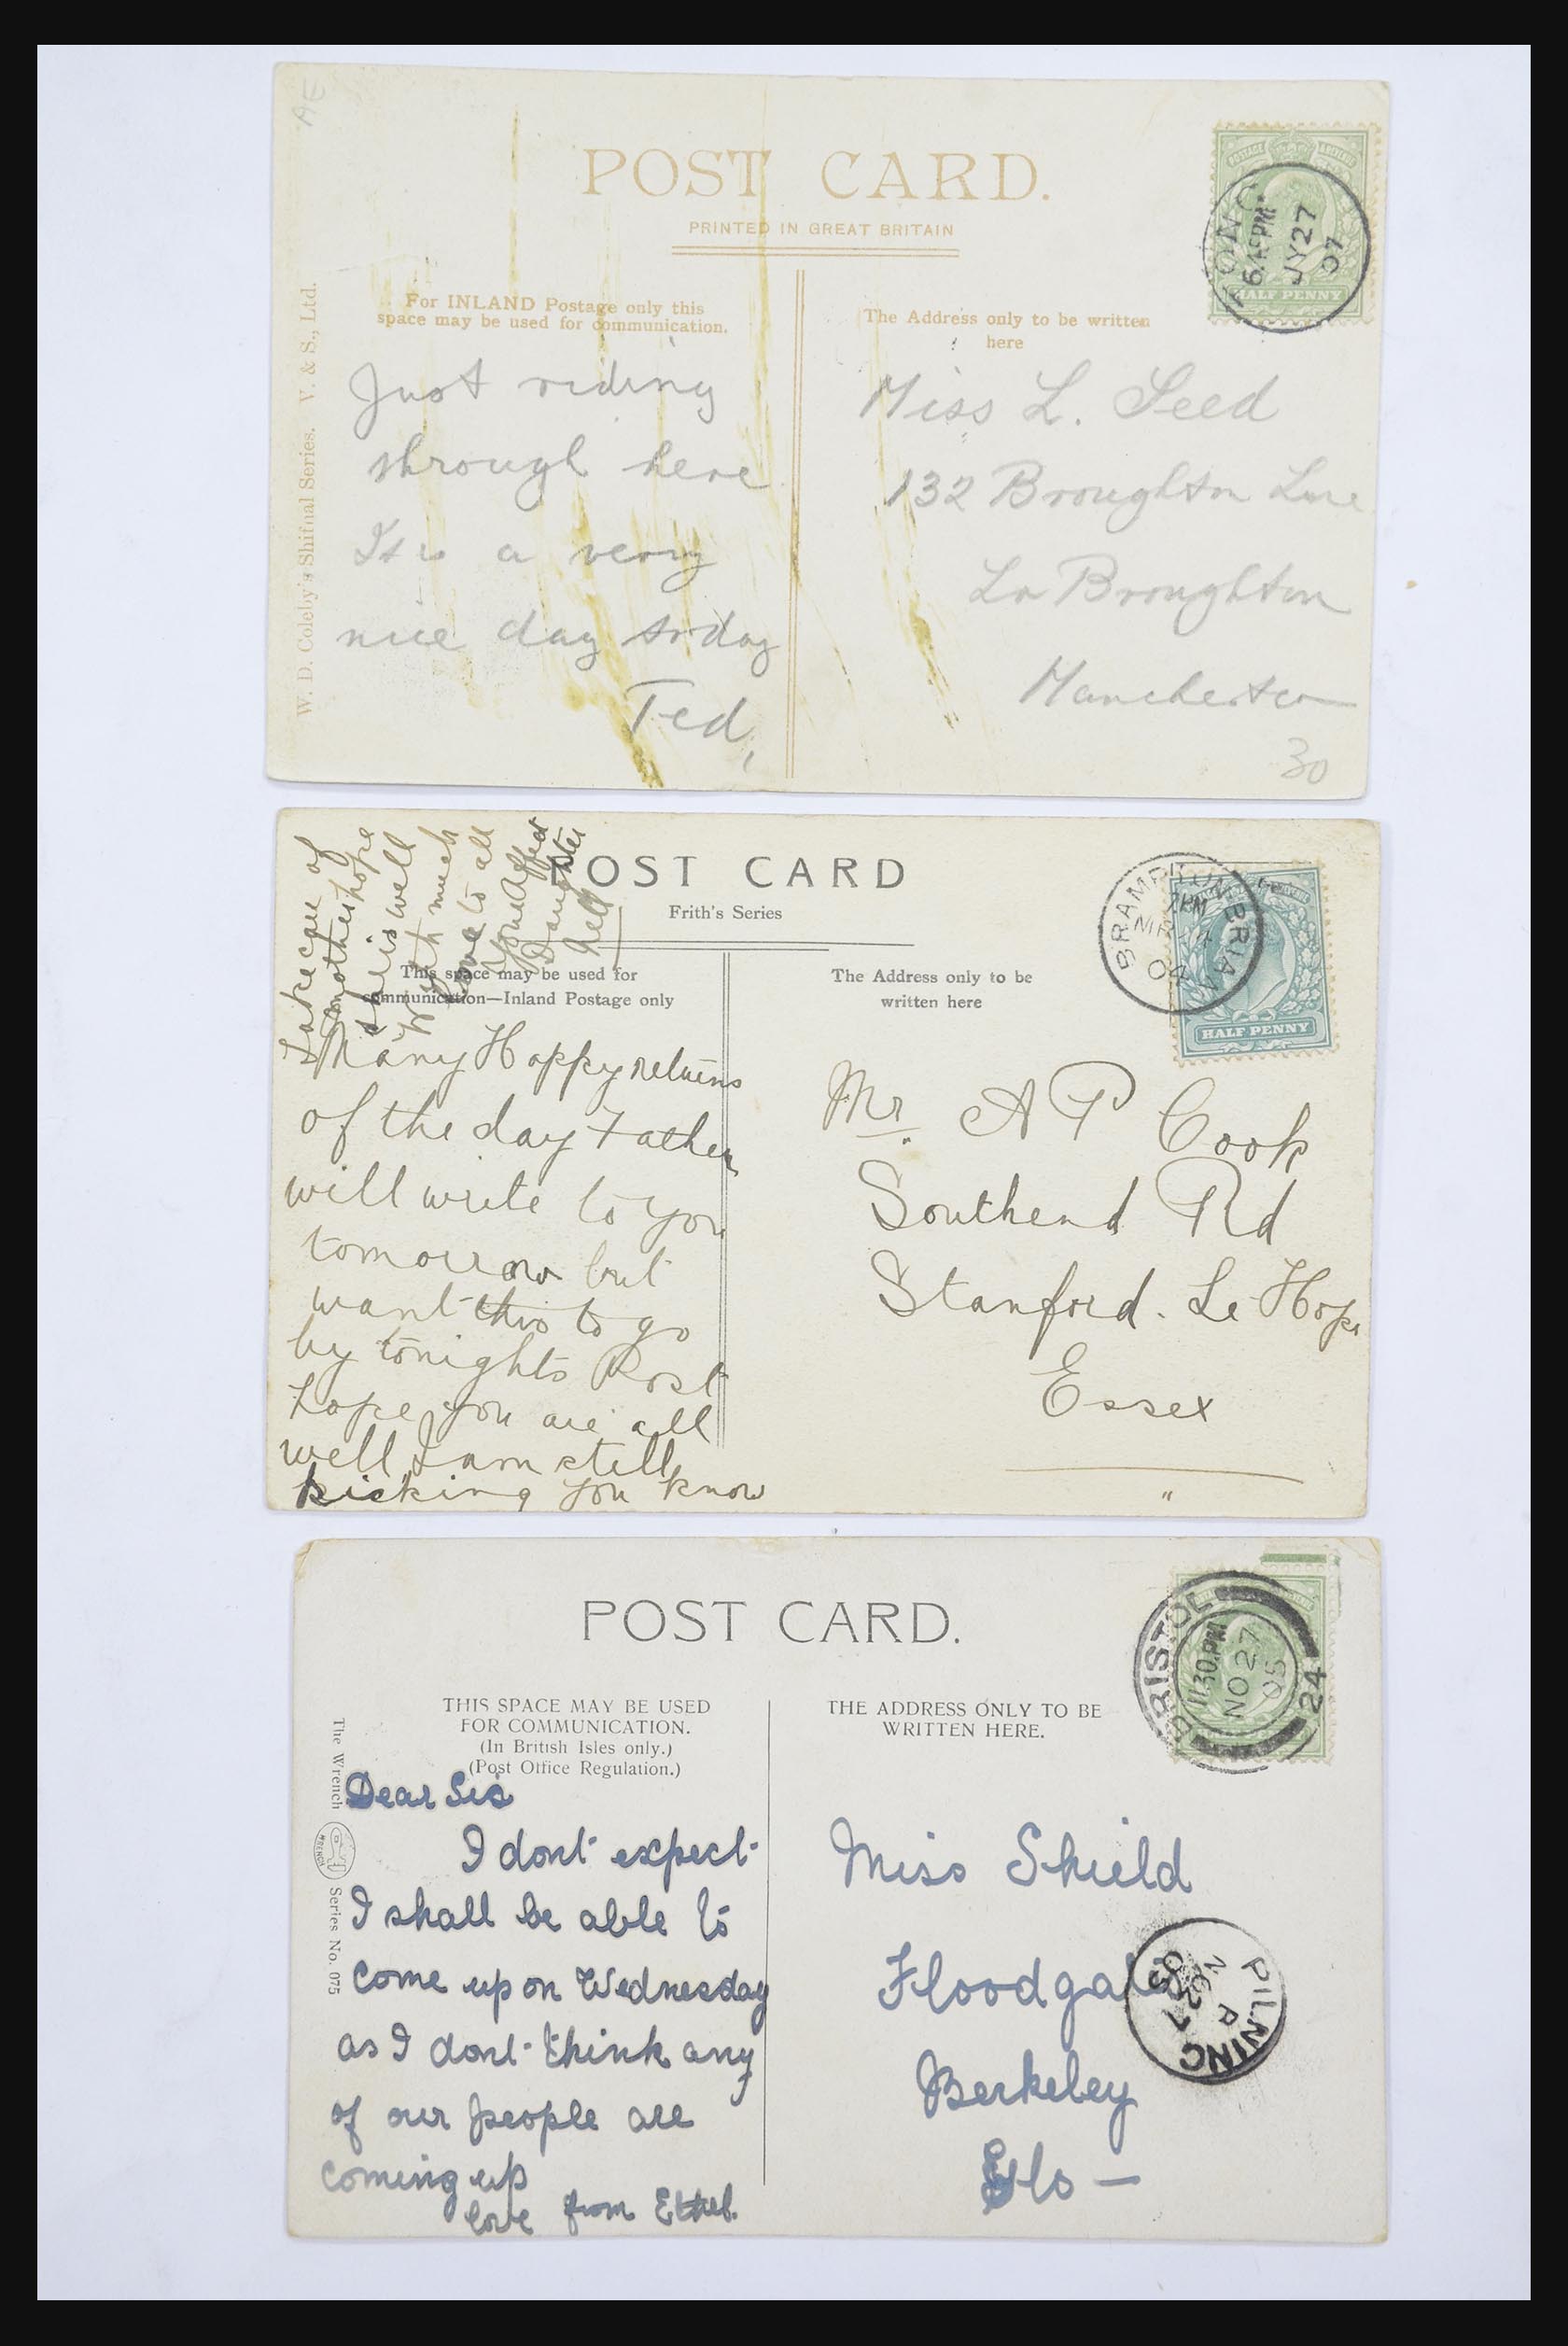 AE
POST CARD.
PRINTED IN GREAT BRITAIN
POSTAGE
HALF PENNY
6.45PM
JY 27
07
W. D. Coleby's Shifnal Series. V. & S., Ltd.
For INLAND Postage only this
space may be used for communication.
Just riding
through here
It is a very
nice day today
Ted,
The Address only to be written
here
Miss L. Seed
132 Broughton Lne
Lr Broughton
Manchester
30
POST CARD
Frith's Series
BRAMPTON BRIAN
04
HALF PENNY
This space may be used for
communication—Inland Postage only
Many Happy returns
of the day Father
will write to you
tomorrow but
want this to go
by tonights Post
hope you are all
well I am still
kicking you know
Take care of
mother hope
she is well
With much
love to all
Your Affect
Daughter
Nell
The Address only to be
written here
Mr. A P Cook
Southend Rd
Stanford. Le Hope
Essex
POST CARD.
BRISTOL
11.30 PM
NO 27
05
24
THIS SPACE MAY BE USED
FOR COMMUNICATION.
(In British Isles only.)
(Post Office Regulation.)
The Wrench
WRENCH
Series No. 075
Dear Sis
I dont expect
I shall be able to
come up on Wednesday
as I dont think any
of our people are
coming up
love from Ethel.
THE ADDRESS ONLY TO BE
WRITTEN HERE.
Miss Shield
Floodgates
Berkeley
Glo —
PILNING
NO 27
05